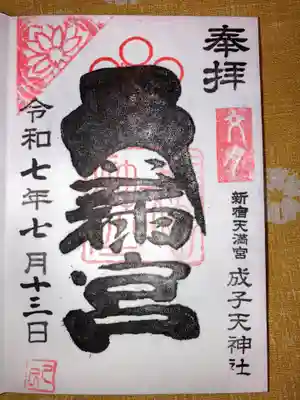 奉拝
新宿天満宮 成子天神社
宮
令和七年七月十三日